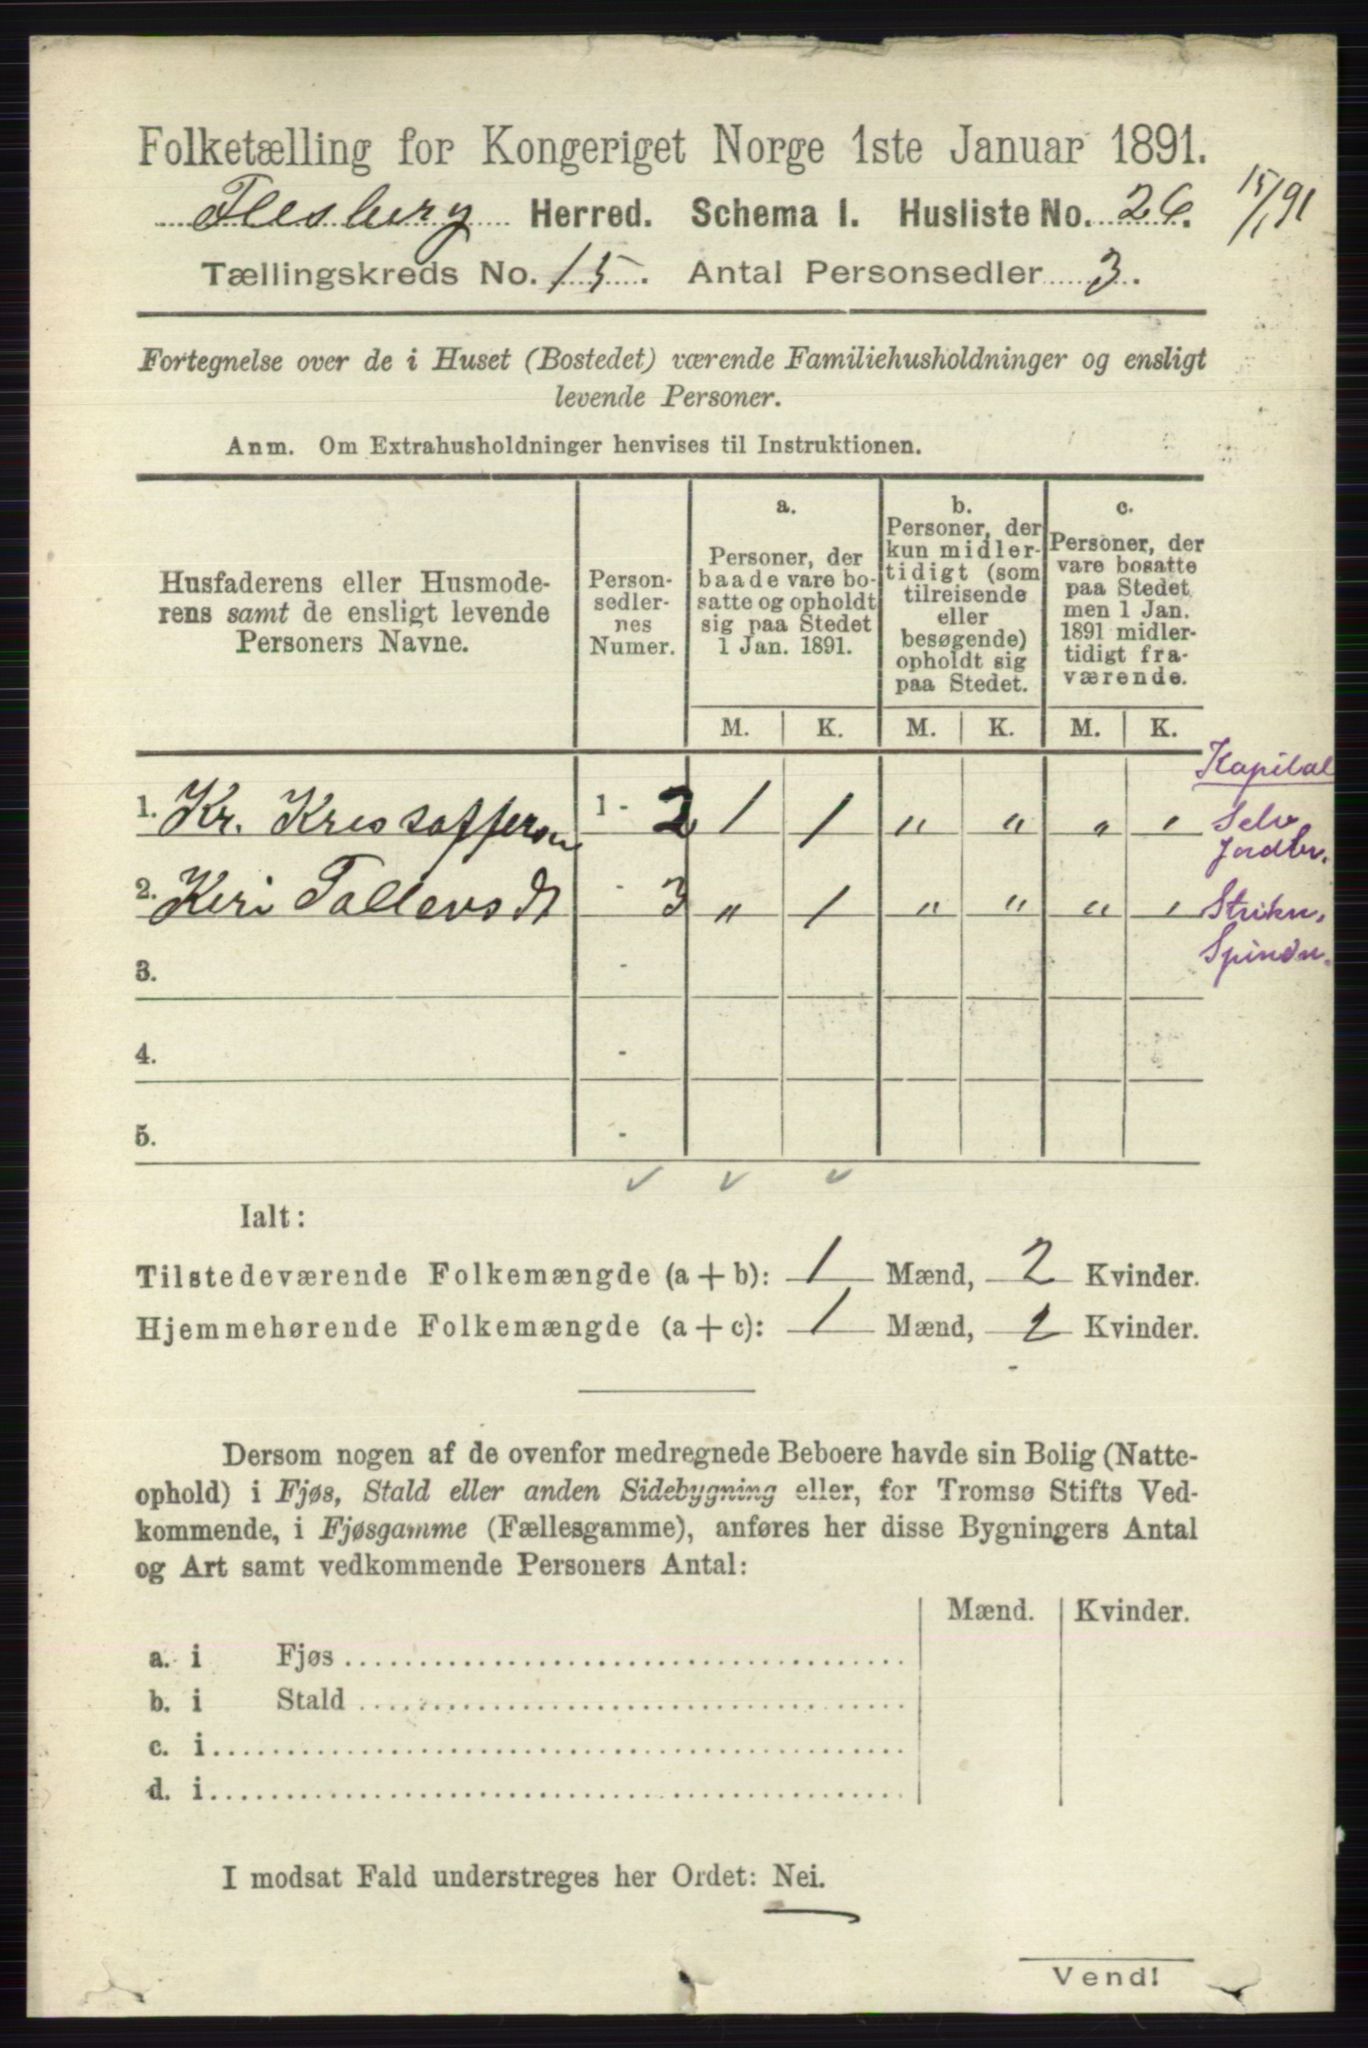 Folketælling for Kongeriget Norge 1ste Januar 1891.
Flesberg Herred. Schema I. Husliste No. 26. 15/1 91
Tællingskreds No. 15. Antal Personsedler 3.
Fortegnelse over de i Huset (Bostedet) værende Familiehusholdninger og ensligt
levende Personer.
Anm. Om Extrahusholdninger henvises til Instruktionen.
Husfaderens eller Husmode-
rens samt de ensligt levende
Personers Navne.
Person-
sedler-
nes
Numer.
a.
Personer, der
baade vare bo-
satte og opholdt
sig paa Stedet
1 Jan. 1891.
b.
Personer, der
kun midler-
tidigt (som
tilreisende
eller
besøgende)
opholdt sig
paa Stedet.
c.
Personer, der
vare bosatte
paa Stedet
men 1 Jan.
1891 midler-
tidigt fra-
værende.
M. K. M. K. M. K.
Kapital
1. Kr. Kristoffersen 1 - 2 1 1 " " " " Selv
Jordbr.
2. Kari Tollevsdt - 3 " 1 " " " " Strikn.
Spindn.
3. -
4. -
5. -
Ialt:
Tilstedeværende Folkemængde (a + b): 1 Mænd, 2 Kvinder.
Hjemmehørende Folkemængde (a + c): 1 Mænd, 2 Kvinder.
Dersom nogen af de ovenfor medregnede Beboere havde sin Bolig (Natte-
ophold) i Fjøs, Stald eller anden Sidebygning eller, for Tromsø Stifts Ved-
kommende, i Fjøsgamme (Fællesgamme), anføres her disse Bygningers Antal
og Art samt vedkommende Personers Antal:
Mænd. Kvinder.
a. i Fjøs
b. i Stald
c. i
d. i
I modsat Fald understreges her Ordet: Nei.
Vend!